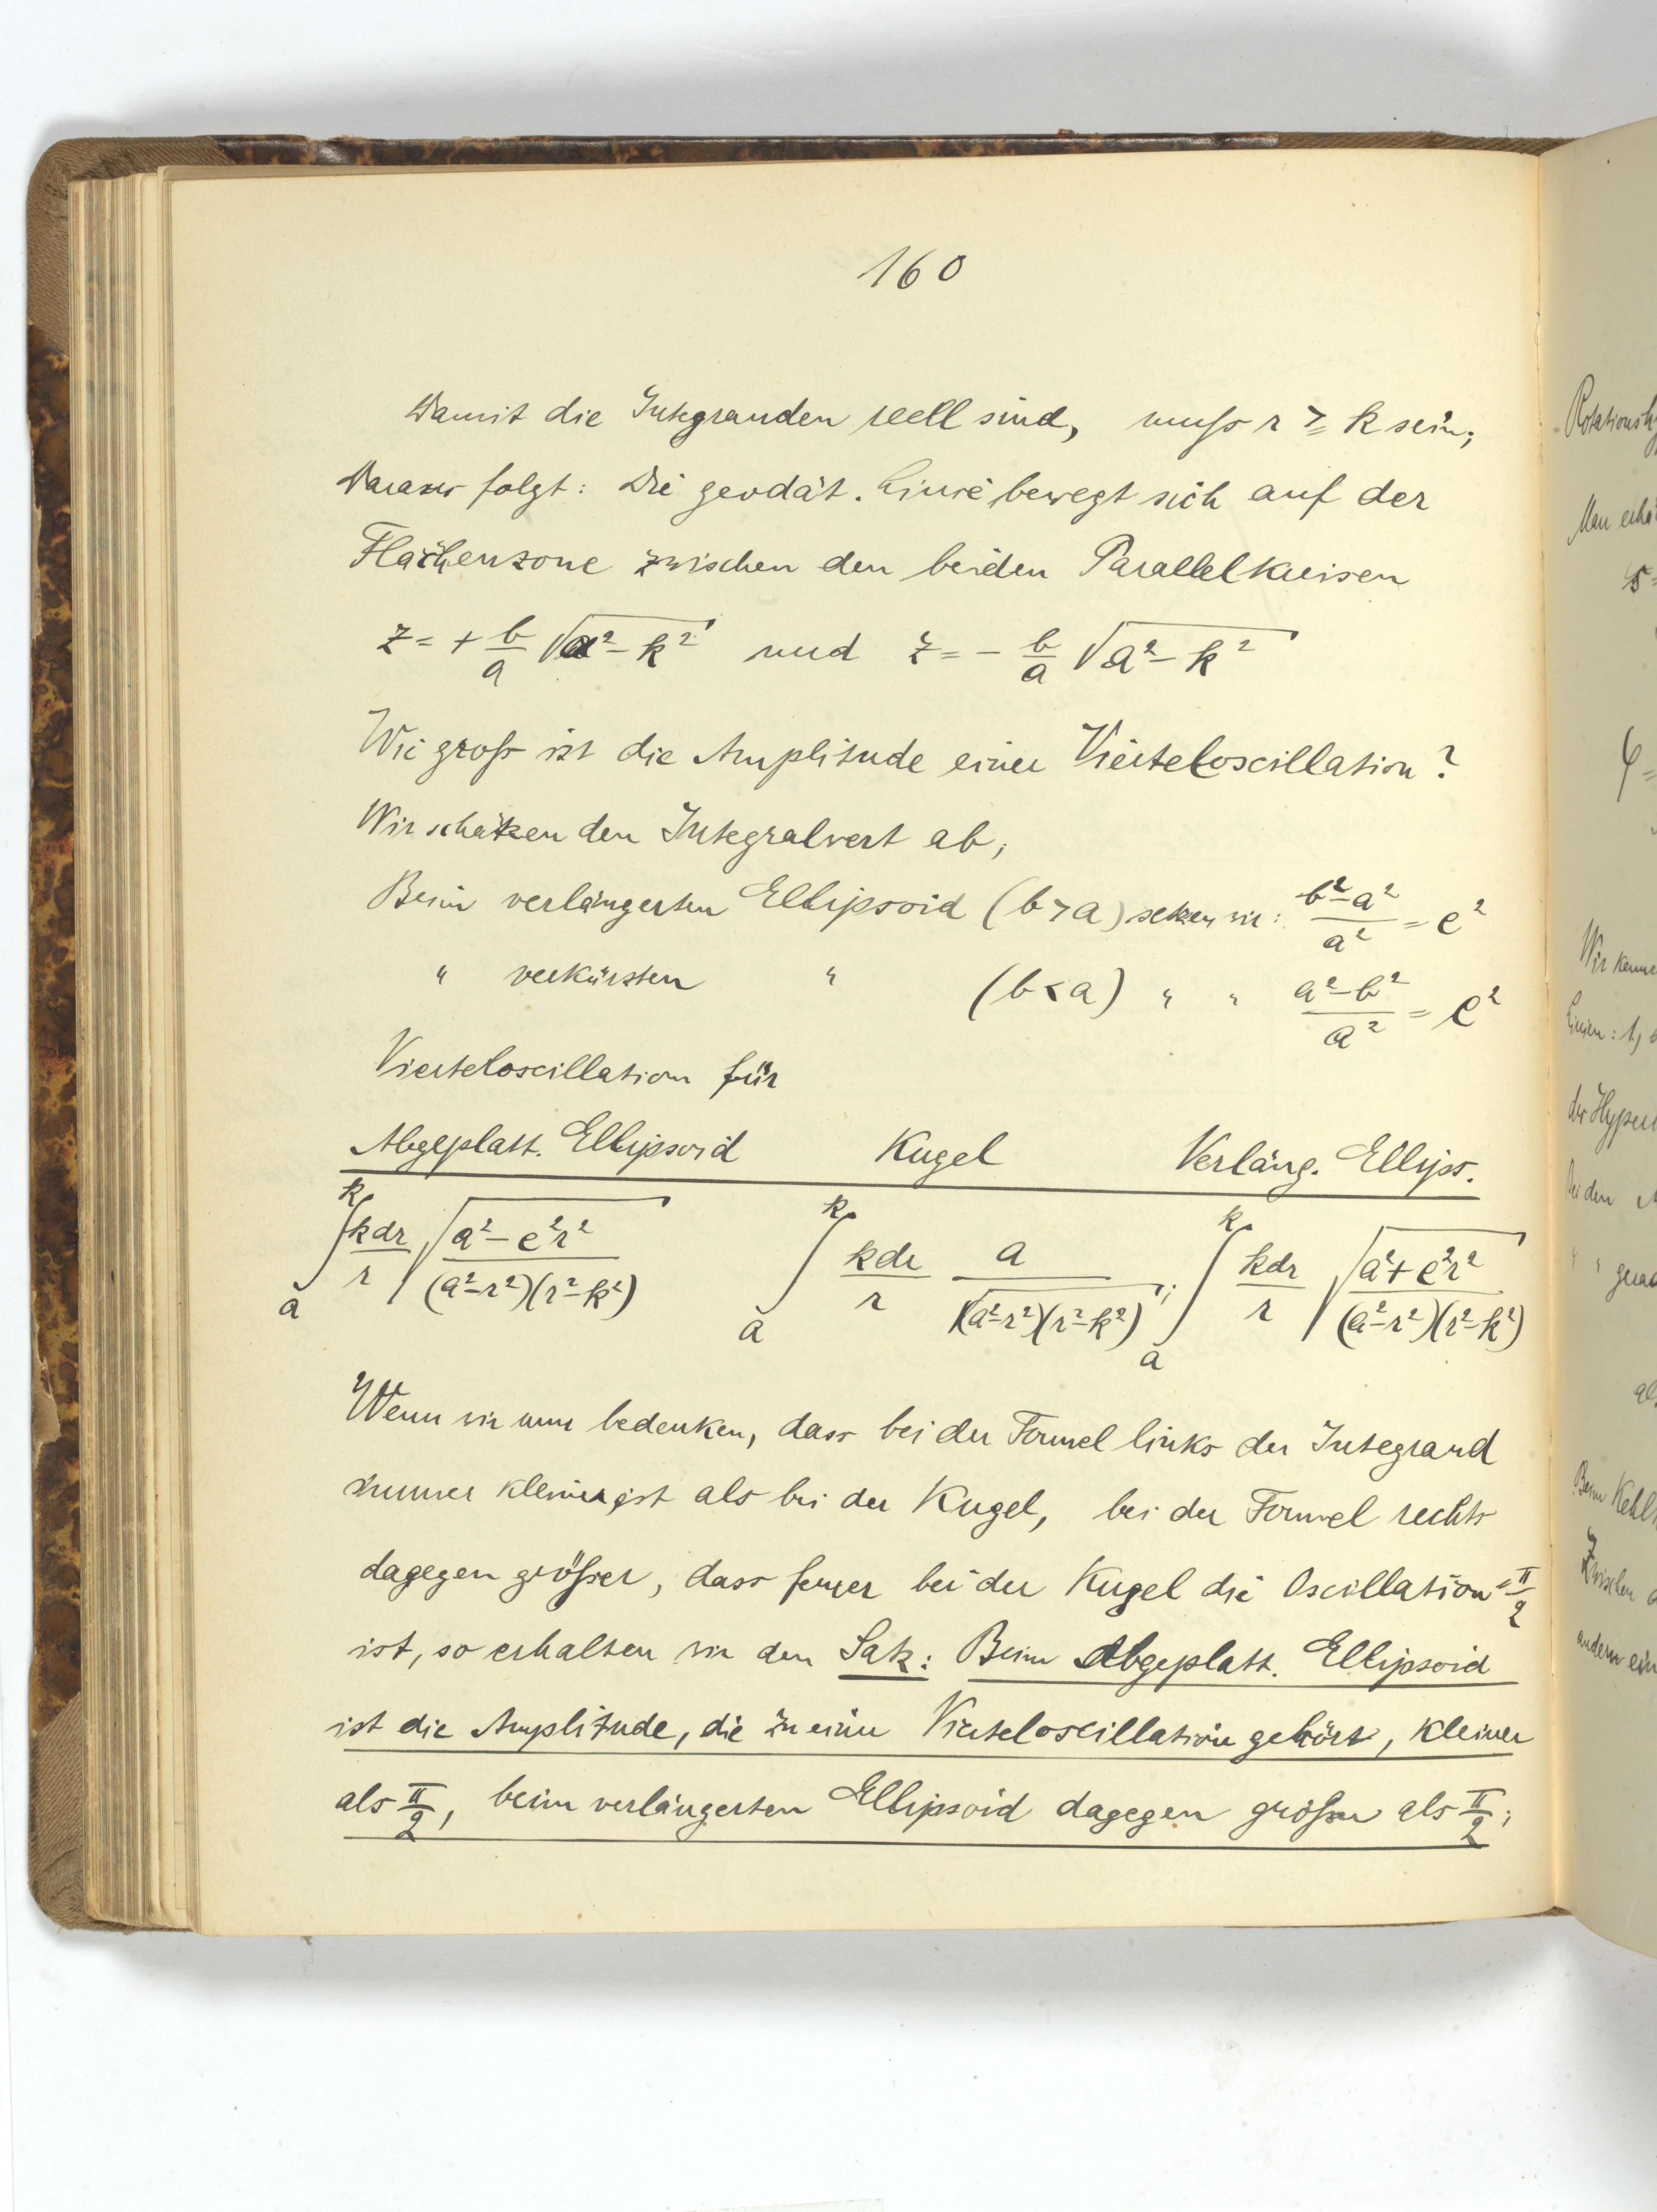 160
Damit die Integranden reell sind, muss r ≥ k sein;
Daraus folgt: Die geodät. Linie bewegt sich auf der
Flächenzone zwischen den beiden Parallelkreisen
z = + b/a √(a² - k²) und z = - b/a √(a² - k²)
Wie gross ist die Amplitude einer Vierteloscillation?
Wir schätzen den Integralwert ab;
Beim verlängerten Ellipsoid (b > a) setzen wir: (b² - a²)/a² = e²
" verkürzten " (b < a) " " (a² - b²)/a² = e²
Vierteloscillation für
Abgeplatt. Ellipsoid Kugel Verläng. Ellips.
∫_a^k kdr/r √((a² - e²r²)/((a² - r²)(r² - k²))) ∫_a^k kdr/r a/√((a² - r²)(r² - k²)) ; ∫_a^k kdr/r √((a² + e²r²)/((a² - r²)(r² - k²)))
Wenn wir nun bedenken, dass bei der Formel links der Integrand
immer kleiner ist als bei der Kugel, bei der Formel rechts
dagegen grösser, dass ferner bei der Kugel die Oscillation = π/2
ist, so erhalten wir den Satz: Beim Abgeplatt. Ellipsoid
ist die Amplitude, die zu einer Vierteloscillation gehört, kleiner
als π/2, beim verlängerten Ellipsoid dagegen grösser als π/2;
Man
φ =
Wir
Linien: 1,
der
Bei den
"
Beim
Zwischen
andern ein